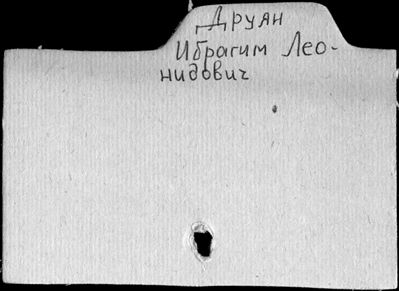 Друян
Ибрагим Лео-
нидович